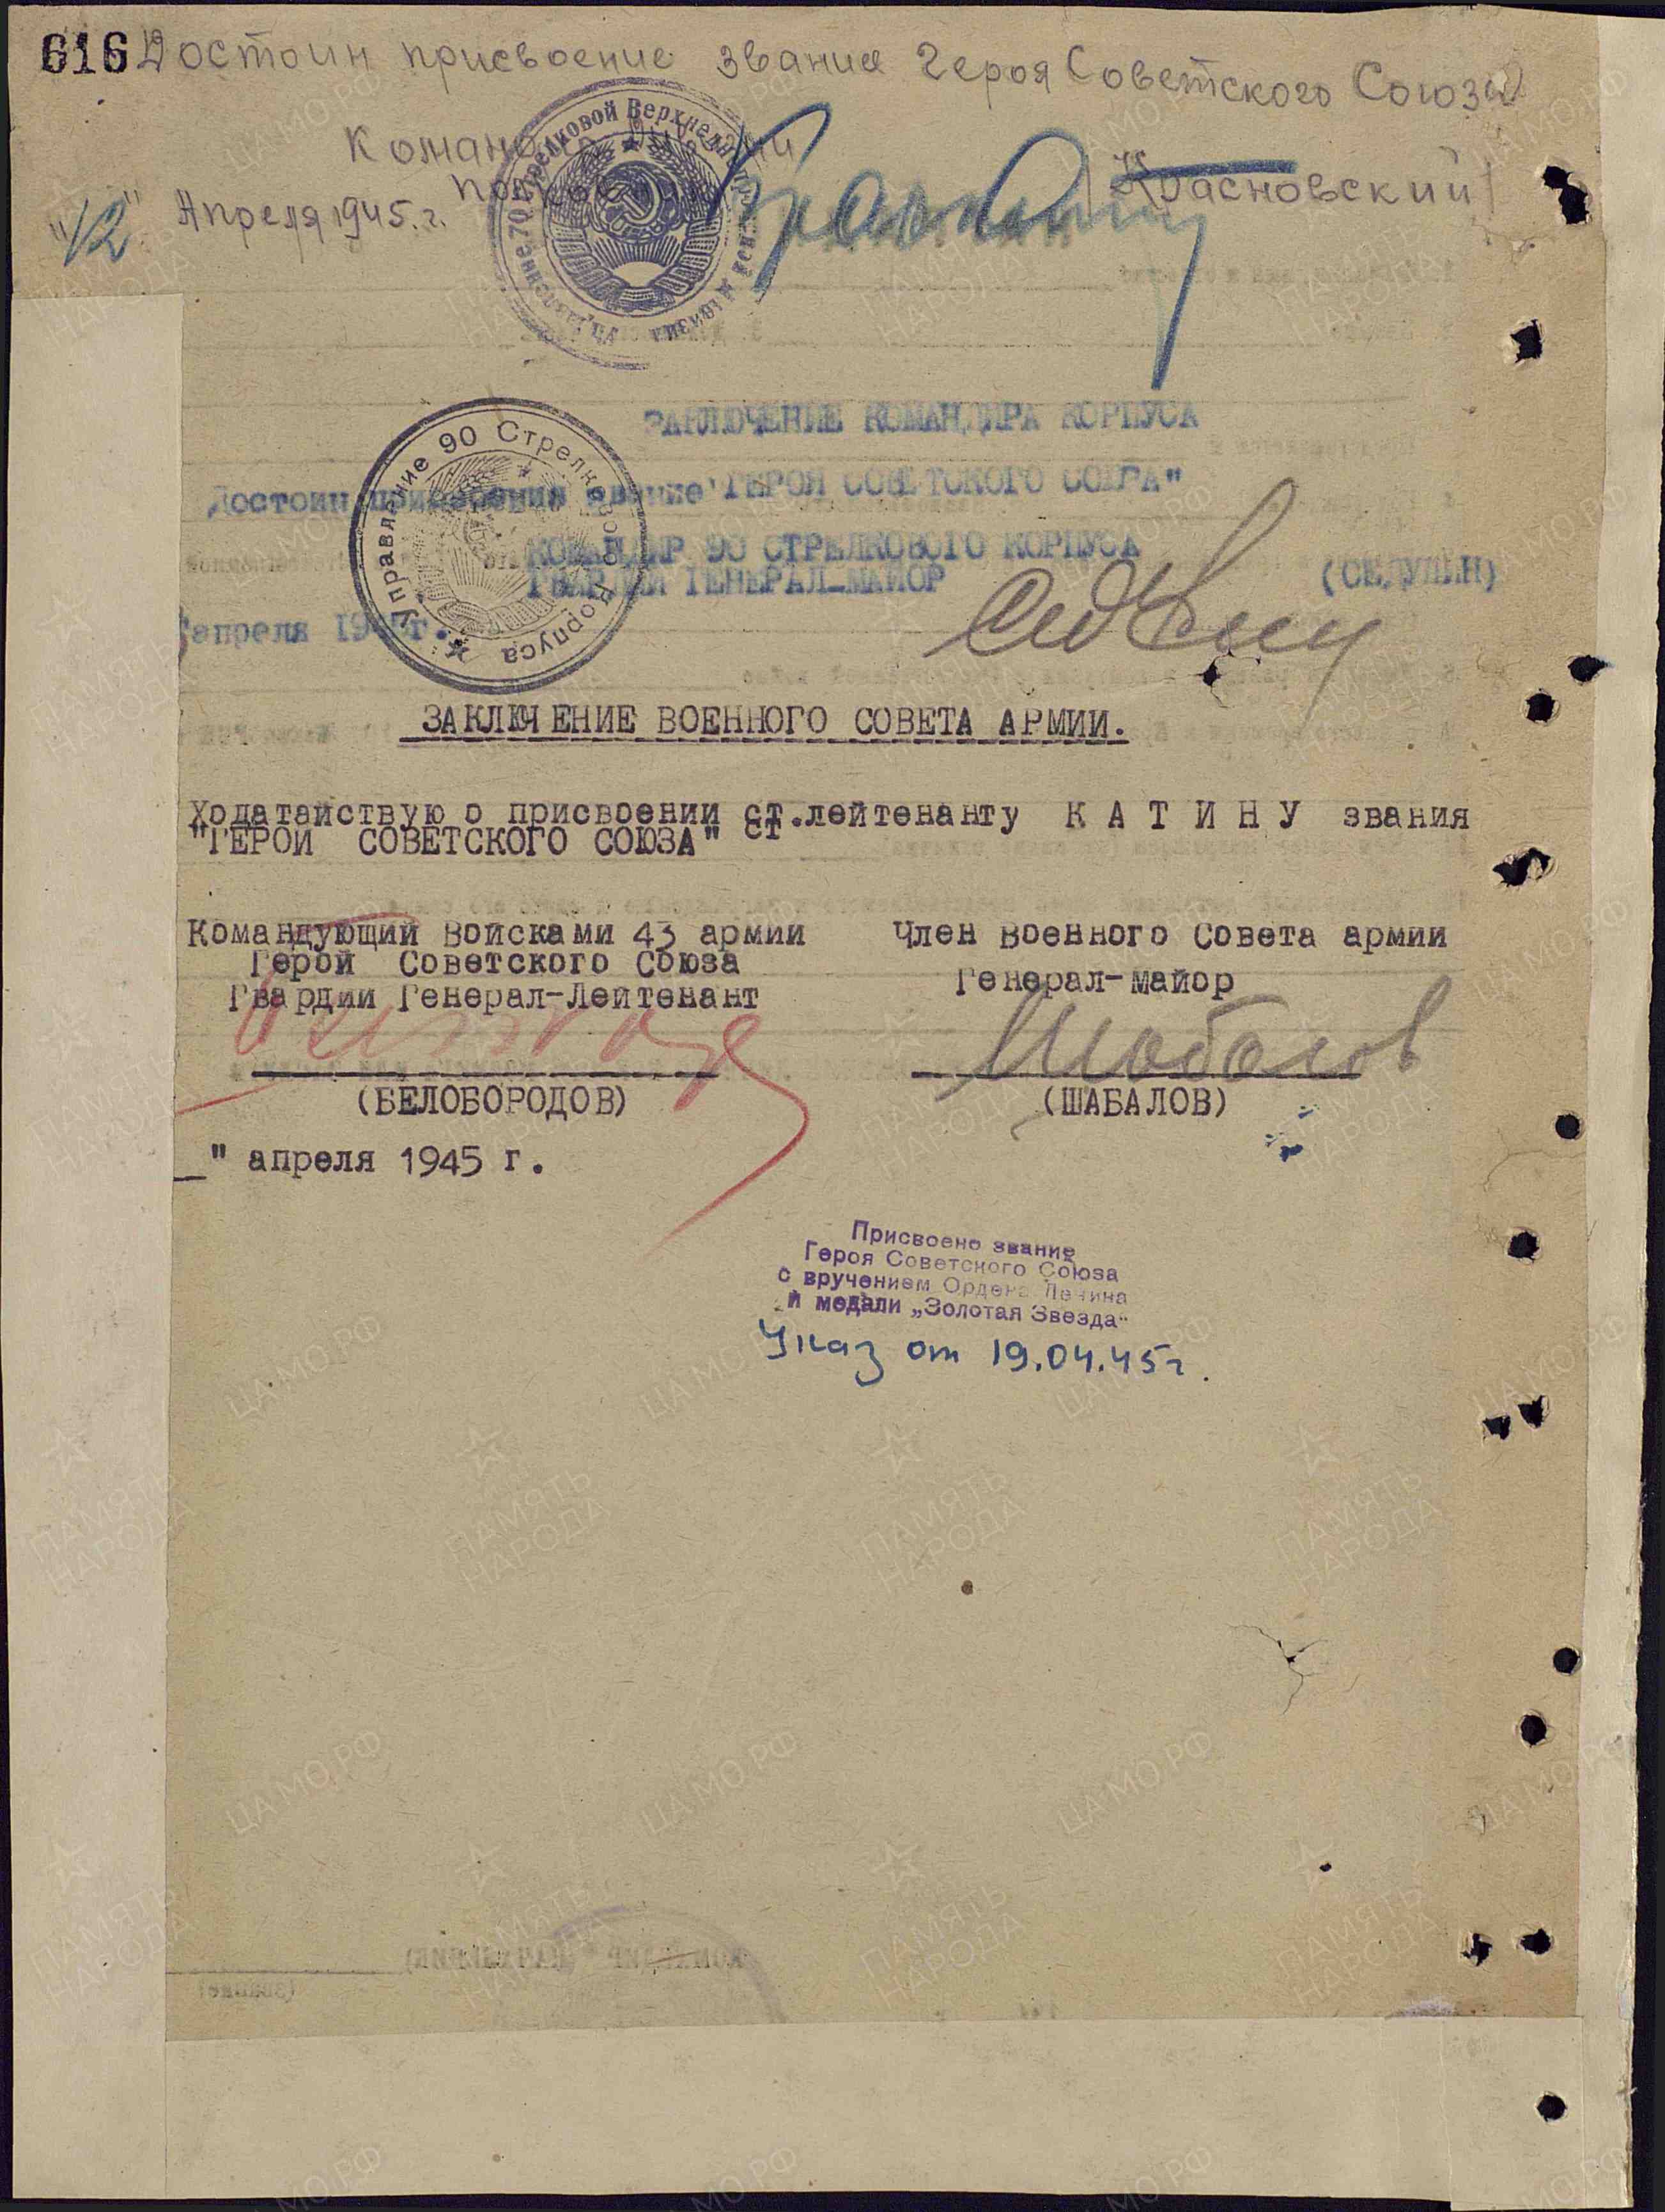 616 Достоин присвоение звания Героя Советского Союза
Полковник Красновский
"12" Апреля 1945.г.
70 Стрелковой Верхнеднепровской дивизии
ЗАКЛЮЧЕНИЕ КОМАНДИРА КОРПУСА
Достоин присвоения звание "ГЕРОЯ СОВЕТСКОГО СОЮЗА"
Управление 90 Стрелкового корпуса
КОМАНДИР 90 СТРЕЛКОВОГО КОРПУСА
ГВАРДИИ ГЕНЕРАЛ-МАЙОР (СЕДУЛИН)
апреля 194 г.
ЗАКЛЮЧЕНИЕ ВОЕННОГО СОВЕТА АРМИИ.
Ходатайствую о присвоении ст.лейтенанту К А Т И Н У звания
"ГЕРОЙ СОВЕТСКОГО СОЮЗА" ст
Командующий Войсками 43 армии
Герой Советского Союза
Гвардии Генерал-Лейтенант
(БЕЛОБОРОДОВ)
Член Военного Совета армии
Генерал-майор
Шабалов
(ШАБАЛОВ)
_" апреля 1945 г.
Присвоено звание
Героя Советского Союза
с вручением Ордена Ленина
и медали „Золотая Звезда"
Указ от 19.04.45г.
ЦАМО.РФ
ПАМЯТЬ
НАРОДА